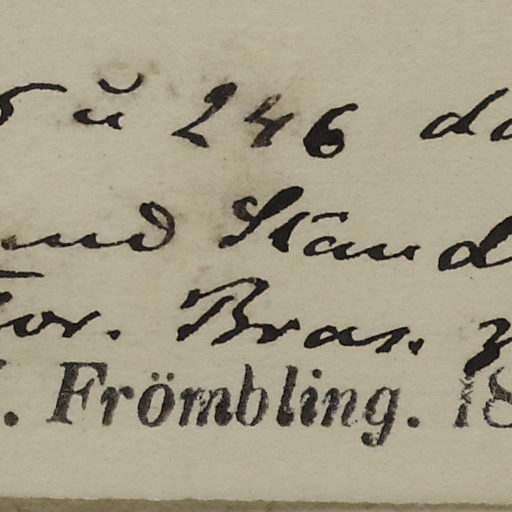 5 ŭ 246 da
und Stand
or. Bras.
. Frömbling. 18